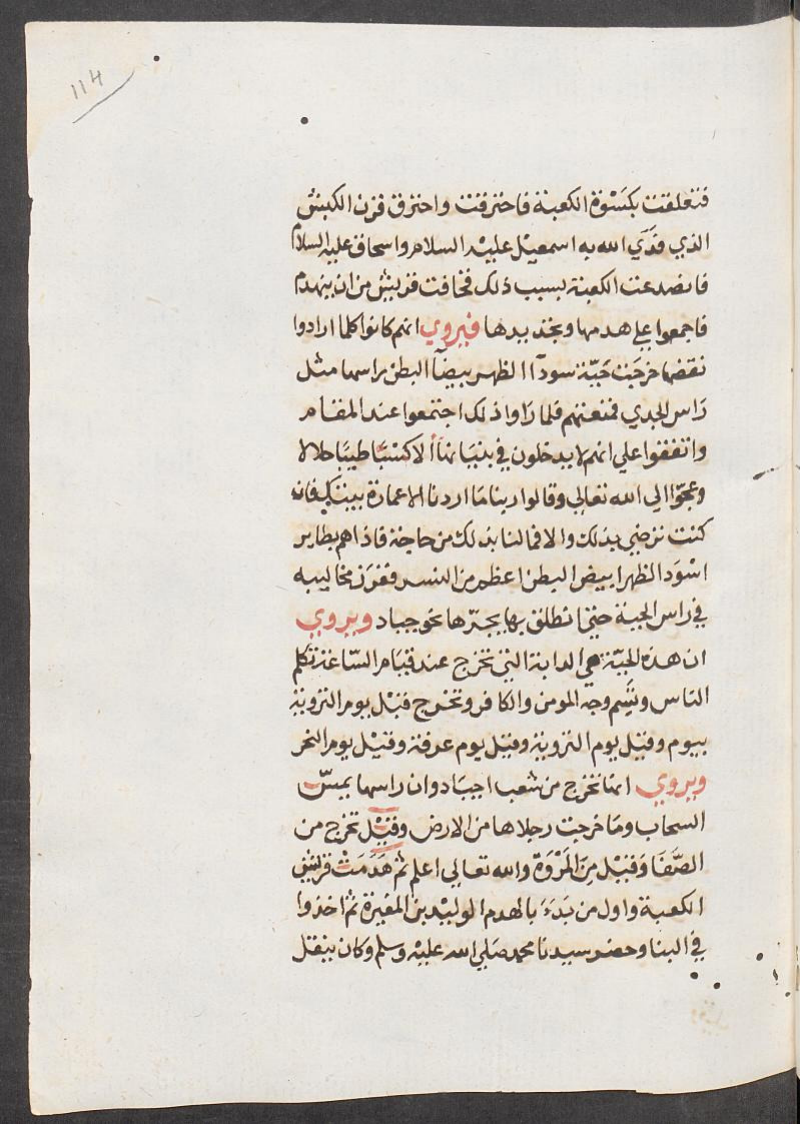 114
فتعلقت بكسوة الكعبة فاحترقت واحترق قرن الكبش
الذي فدي الله به اسمعيل عليه السلام واسحاق عليه السلام
فانصدعت الكعبة بسبب ذلك فخافت قريش من ان ينهدم
فاجمعوا علي هدمها وتجديدها فيروي انهم كانوا كلما ارادوا
نقضها خرجت حيّة سودآا الظهر بيضآا البطن راسها مثل
رَاس الجدي فمنعتهم فلما رَاوا ذلك اجتمعوا عند المقام
واتفقوا علي انهم لا يدخلون في بنيانها الا كسْبًا طيبًا حلالا
وعجوّا الي الله تعالي وقالوا ربنا مَا اردنا الا عمارة بيتك فان
كنت ترضي بذلك والا فمالنا بذلك من حاجة فاذا هم بطاير
اسْوَد الظهر ابيض البطن اعظم من النسر فغرَز مخاليبه
في راس الحية حتي انطلق بها يجرّها نحو جياد ويروي
ان هذه الحيّة هي الدابة التي تخرج عند قيام السّاعة تكلم
الناس وتَسِم وجه المومن والكافر وتخرج قبل يوم التروية
بيوم وقيل يوم التروية وقيل يوم عرفة وقيل يوم النحر
ويروي انها تخرج من شعب اجياد وان راسها يمسّ
السحاب ومَا خرجت رجلاها من الارض وقيل تخرج من
الصَّفَا وَقيل مِنَ المَرْوَة والله تعالي اعلم ثم هَدَمَتْ قريش
الكعبة واول من بَدَءَ بالهدم الوليد بن المغيرة ثم اخذوا
في البنا وحضر سيدنا محمد صَلي الله عليه وسلم وكان ينقل